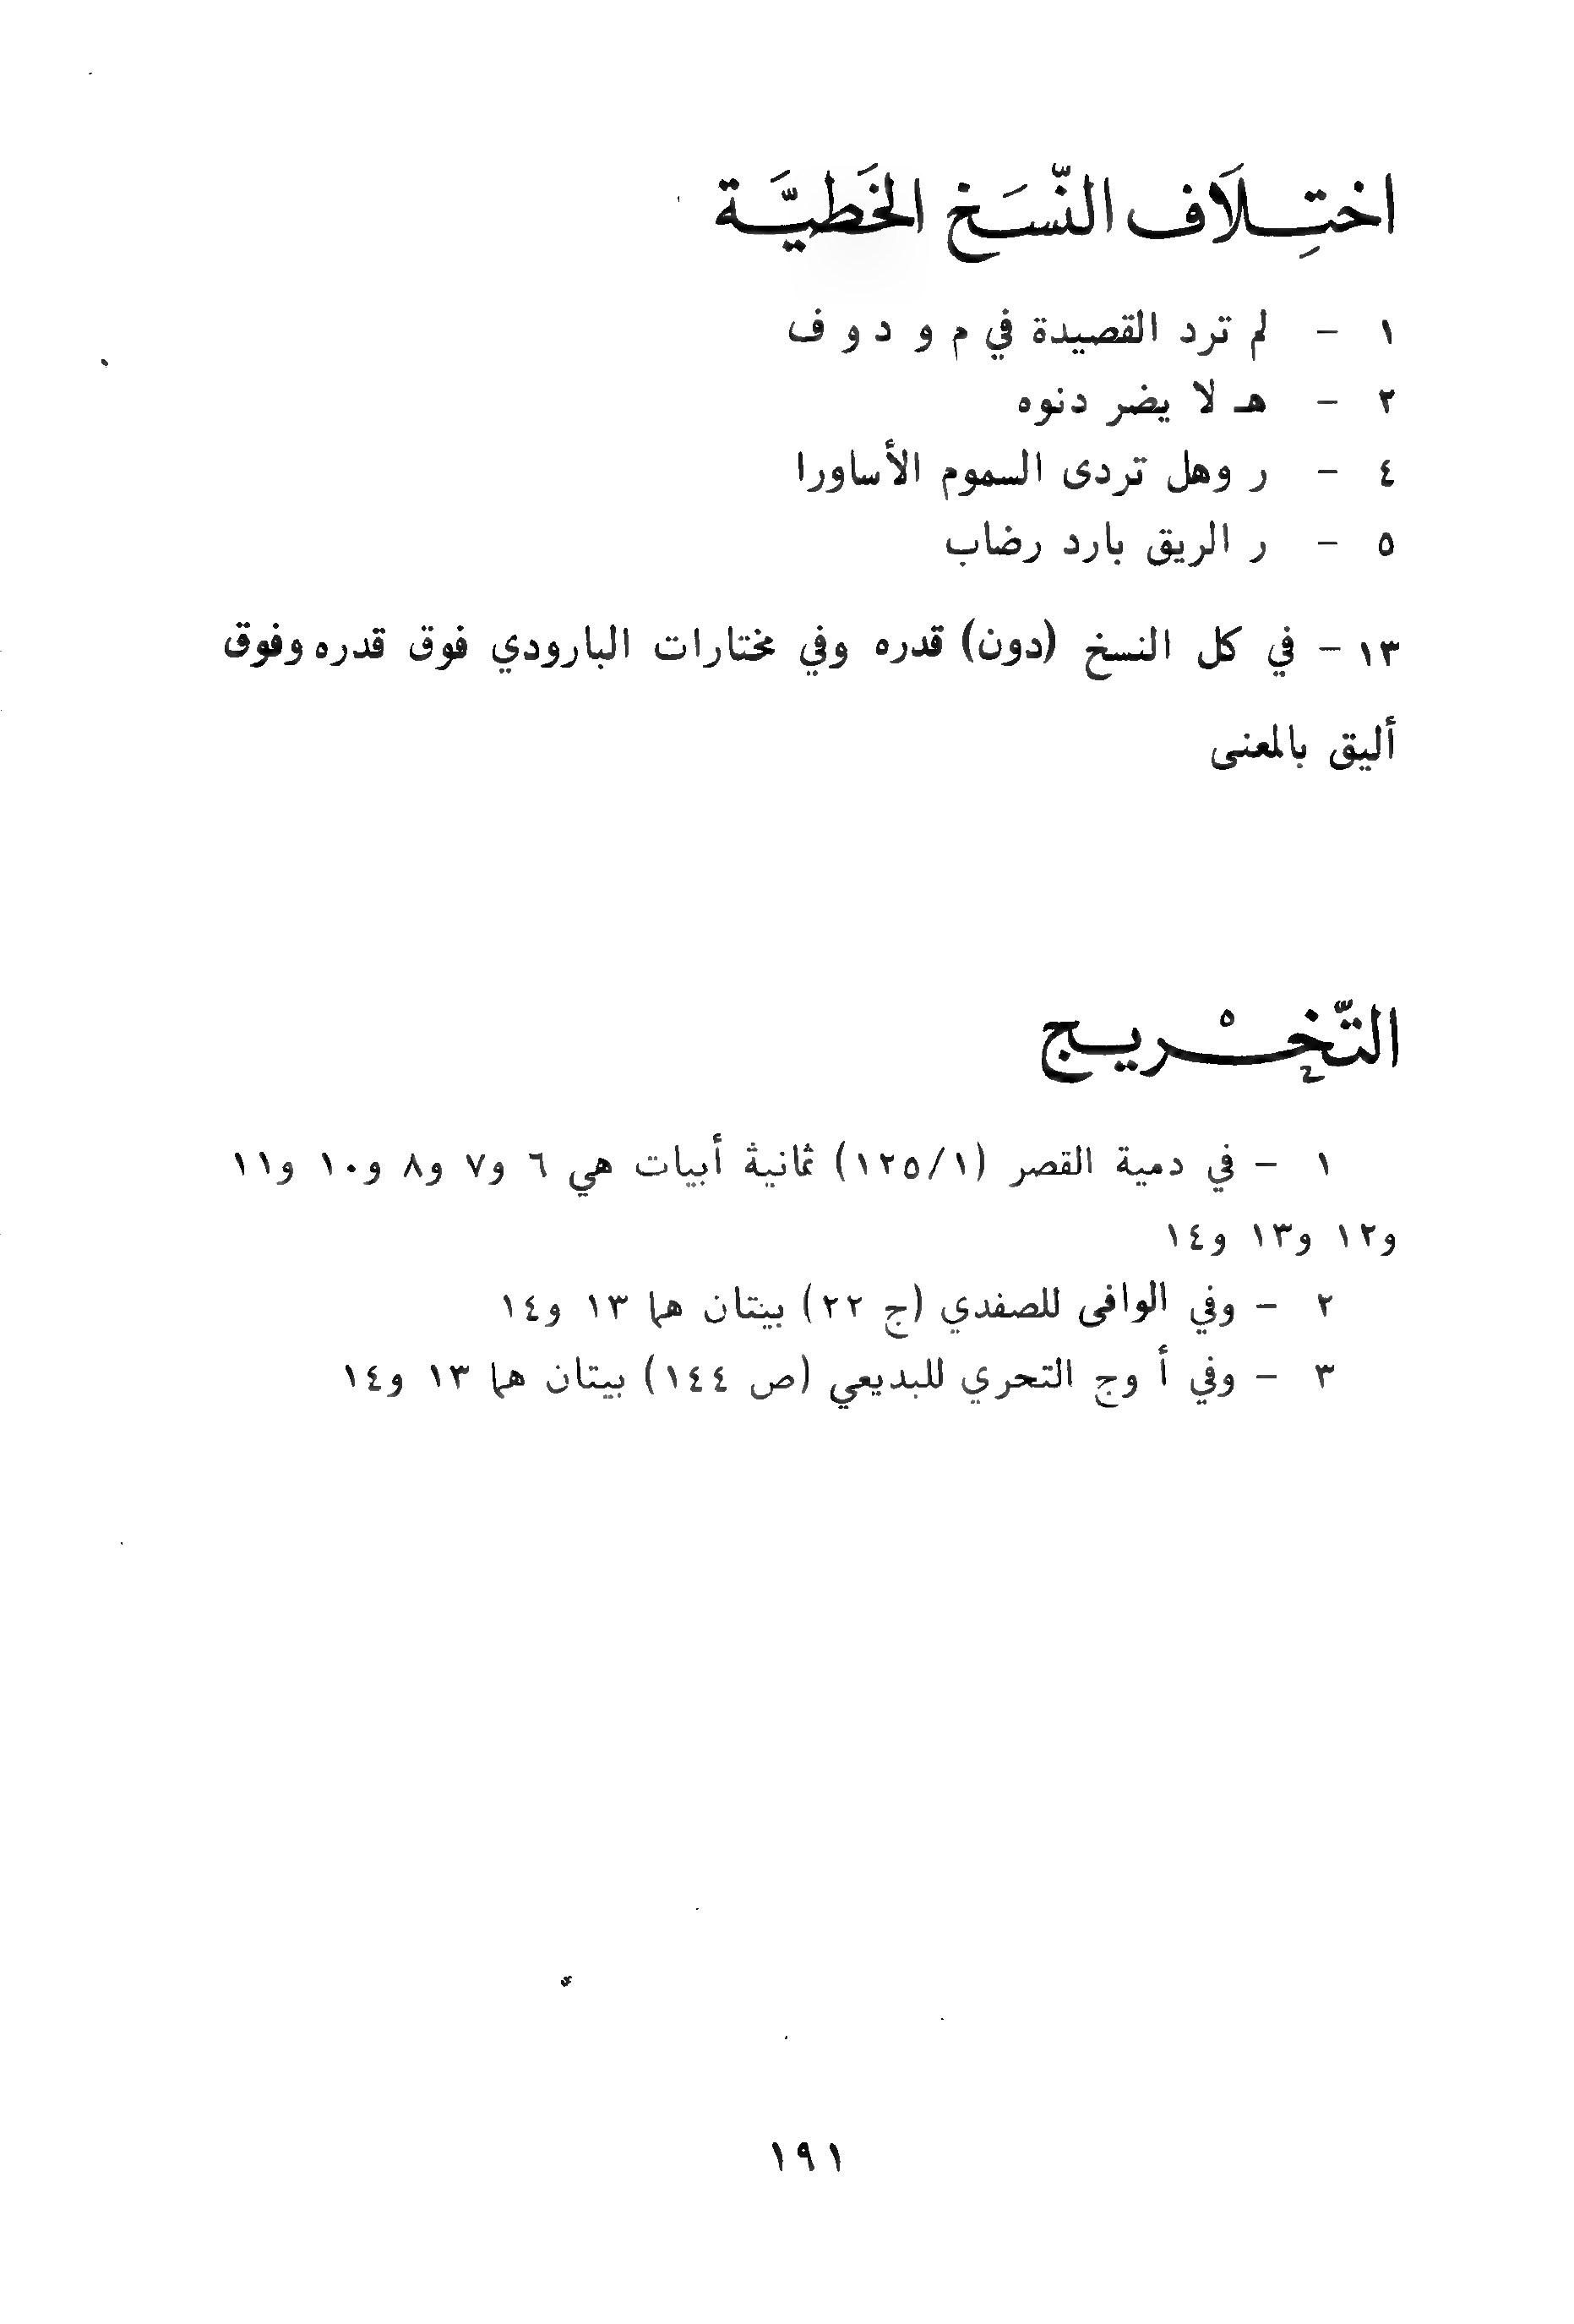 اختِلَاف النّسَخ الخَطيَّة
١ - لم ترد القصيدة في م و د و ف
٢ - هـ لا يضر دنوه
٤ - ر وهل تردى السموم الأساورا
٥ - ر الريق بارد رضاب
١٣ - في كل النسخ (دون) قدره وفي مختارات البارودي فوق قدره وفوق
أليق بالمعنى
التّخْريج
١ - في دمية القصر (١٢٥/١) ثمانية أبيات هي ٦ و٧ و٨ و١٠ و١١
و١٢ و١٣ و١٤
٢ - وفي الوافى للصفدي (ج ٢٢) بيتان هما ١٣ و١٤
٣ - وفي أ وج التحري للبديعي (ص ١٤٤) بيتان هما ١٣ و١٤
١٩١